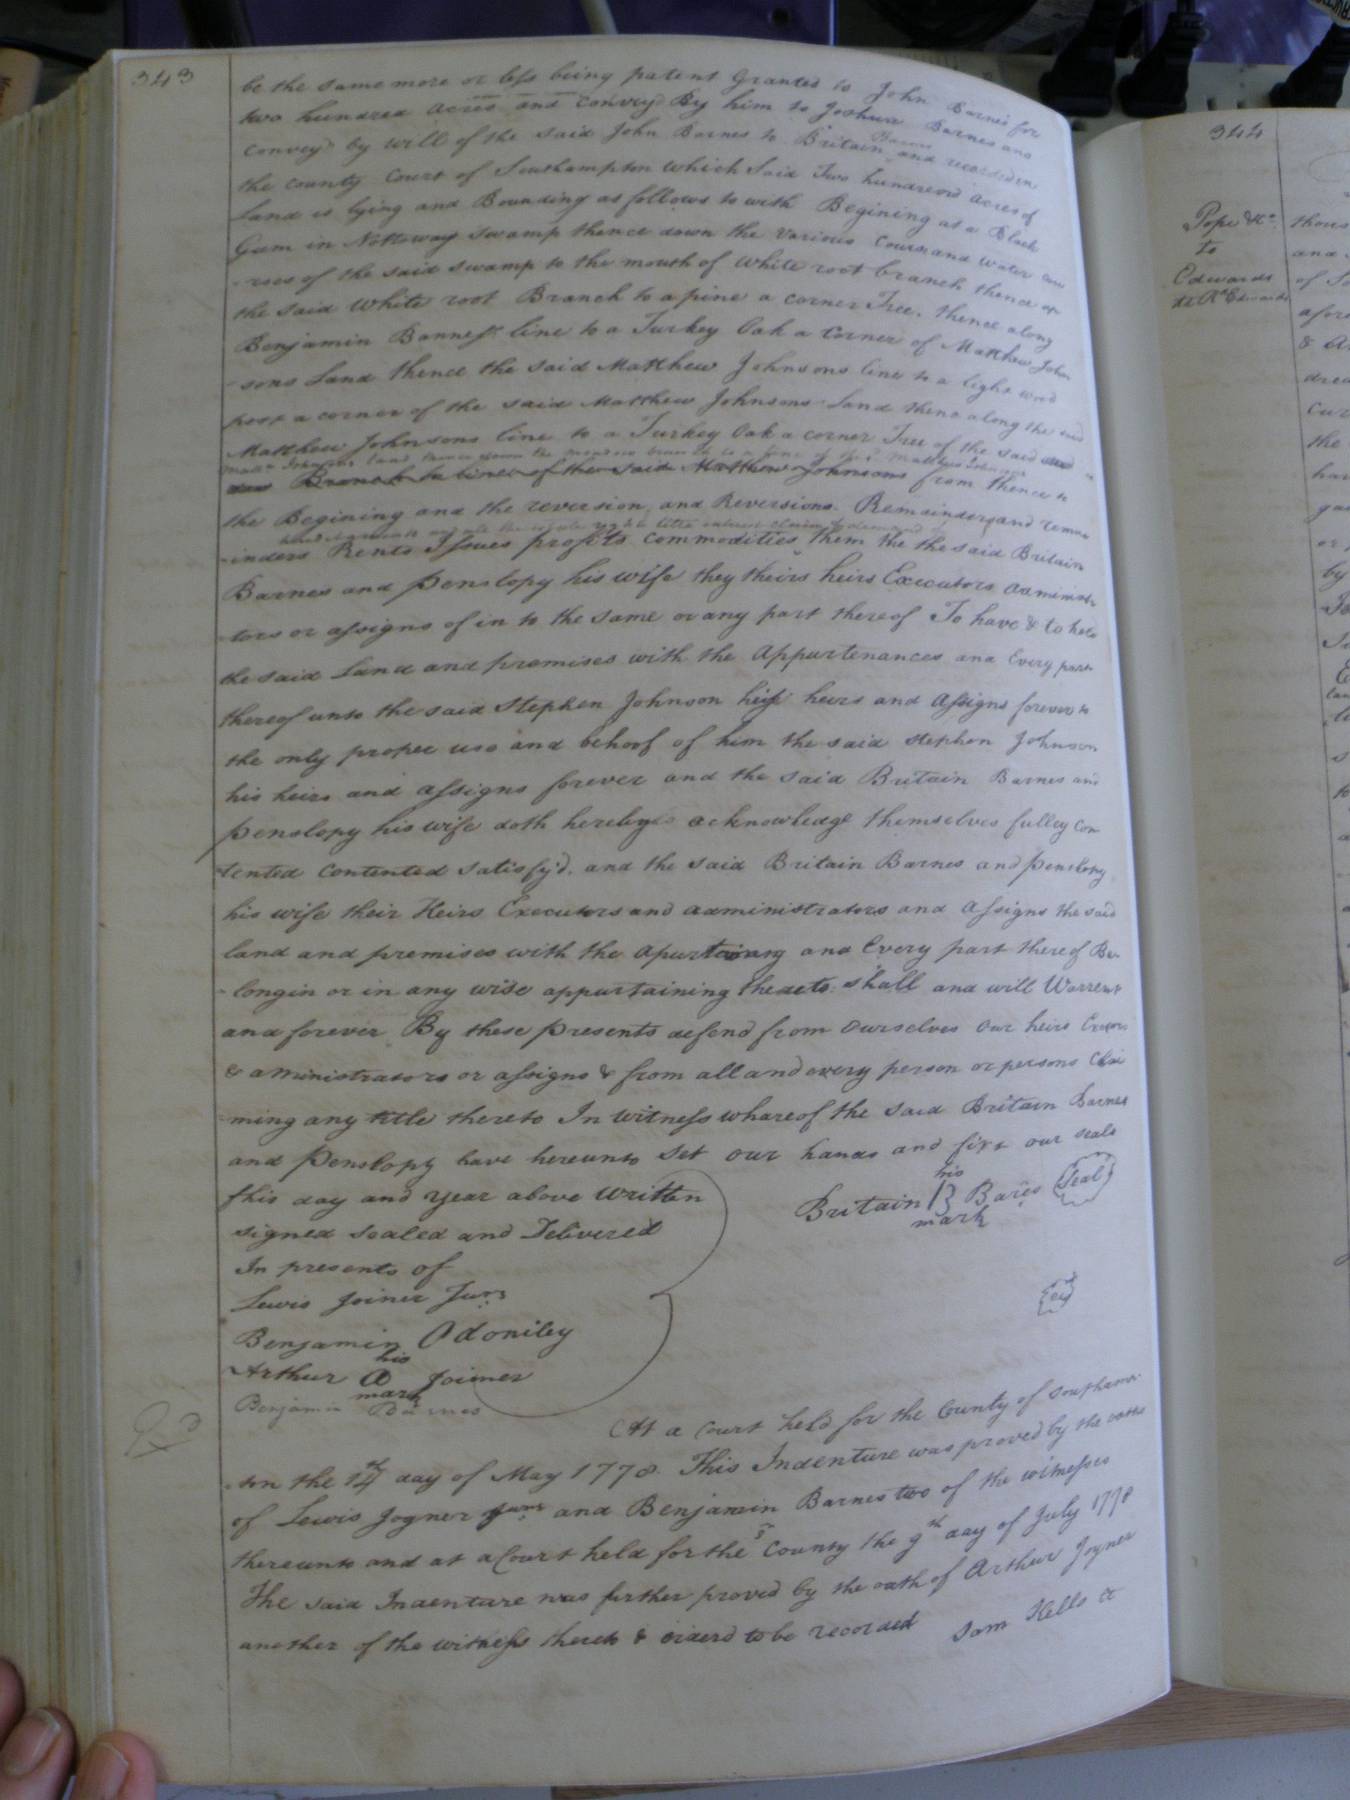 343
be the same more or less being patent Granted to John Barnes for
two hundred acres and convey'd By him to Joshua Barnes and
convey'd by will of the said John Barnes to Britain Barnes and recorded in
the county Court of Southampton which said Two hundred acres of
Land is lying and Bounding as follows to with Begining at a Black
Gum in Nottoway swamp thence down the various course and water cou
-rses of the said swamp to the mouth of white root branch thence up
the said white root Branch to a pine a corner Tree, thence along
Benjamin line to a Turkey Oak a corner of Matthew John
-sons Land thence the said Matthew Johnsons line to a light wood
post a corner of the said Matthew Johnsons Land thence along the said
Matthew Johnsons line to a Turkey Oak a corner Tree of the said
land thence down the branch to a line of Matthew Johnson
Branch to line of the said Matthew Johnsons from thence to
the Begining and the reversion, and Reversions. Remainder and rema
and all the estate right title interest claim & demand
-inders Rents Issues profits commodities them the the said Britain
Barnes and Penelopy his wife they theirs heirs Executors administra
-tors or assigns of in to the same or any part thereof To have & to hold
the said Land and premises with the Appurtenances and Every part
thereof unto the said Stephen Johnson his heirs and Assigns forever to
the only proper use and behoof of him the said Stephen Johnson
his heirs and assigns forever and the said Britain Barnes and
Penelopy his wife doth hereby acknowledge themselves fulley con
-tented contented satisfy'd. and the said Britain Barnes and Penelopy
his wife their Heirs Executors and administrators and Assigns the said
land and premises with the and Every part thereof Be
-longin or in any wise appurtaining thereto shall and will Warrent
and forever By these presents defend from ourselves our heirs Exors
& aministrators or assigns & from all and every person or persons Clai
-ming any title thereto In witness whareof the said Britain Barnes
and Penelopy have hereunto set our hands and fixt our seals
this day and year above written
signed sealed and Delivered
In presents of
Lewis Joiner Junr
Benjamin Odoniley
his
Arthur A Joiner
mark
Benjamin Barnes
his
Britain B Barns Seal
mark
At a Court held for the County of Southamp
-ton the 14th day of May 1778. This Indenture was proved by the oaths
of Lewis Joyner Junr and Benjamin Barnes two of the witnesses
thereunto and at a Court held for the sd County the 9th day of July 1778
The said Indenture was further proved by the oath of Arthur Joyner
another of the witness thereto & orderd to be recorded
Sam Kello
344
Pope &c
to
Edwards
thous
and
of So
afore
& A
drea
Cur
the
ha
by